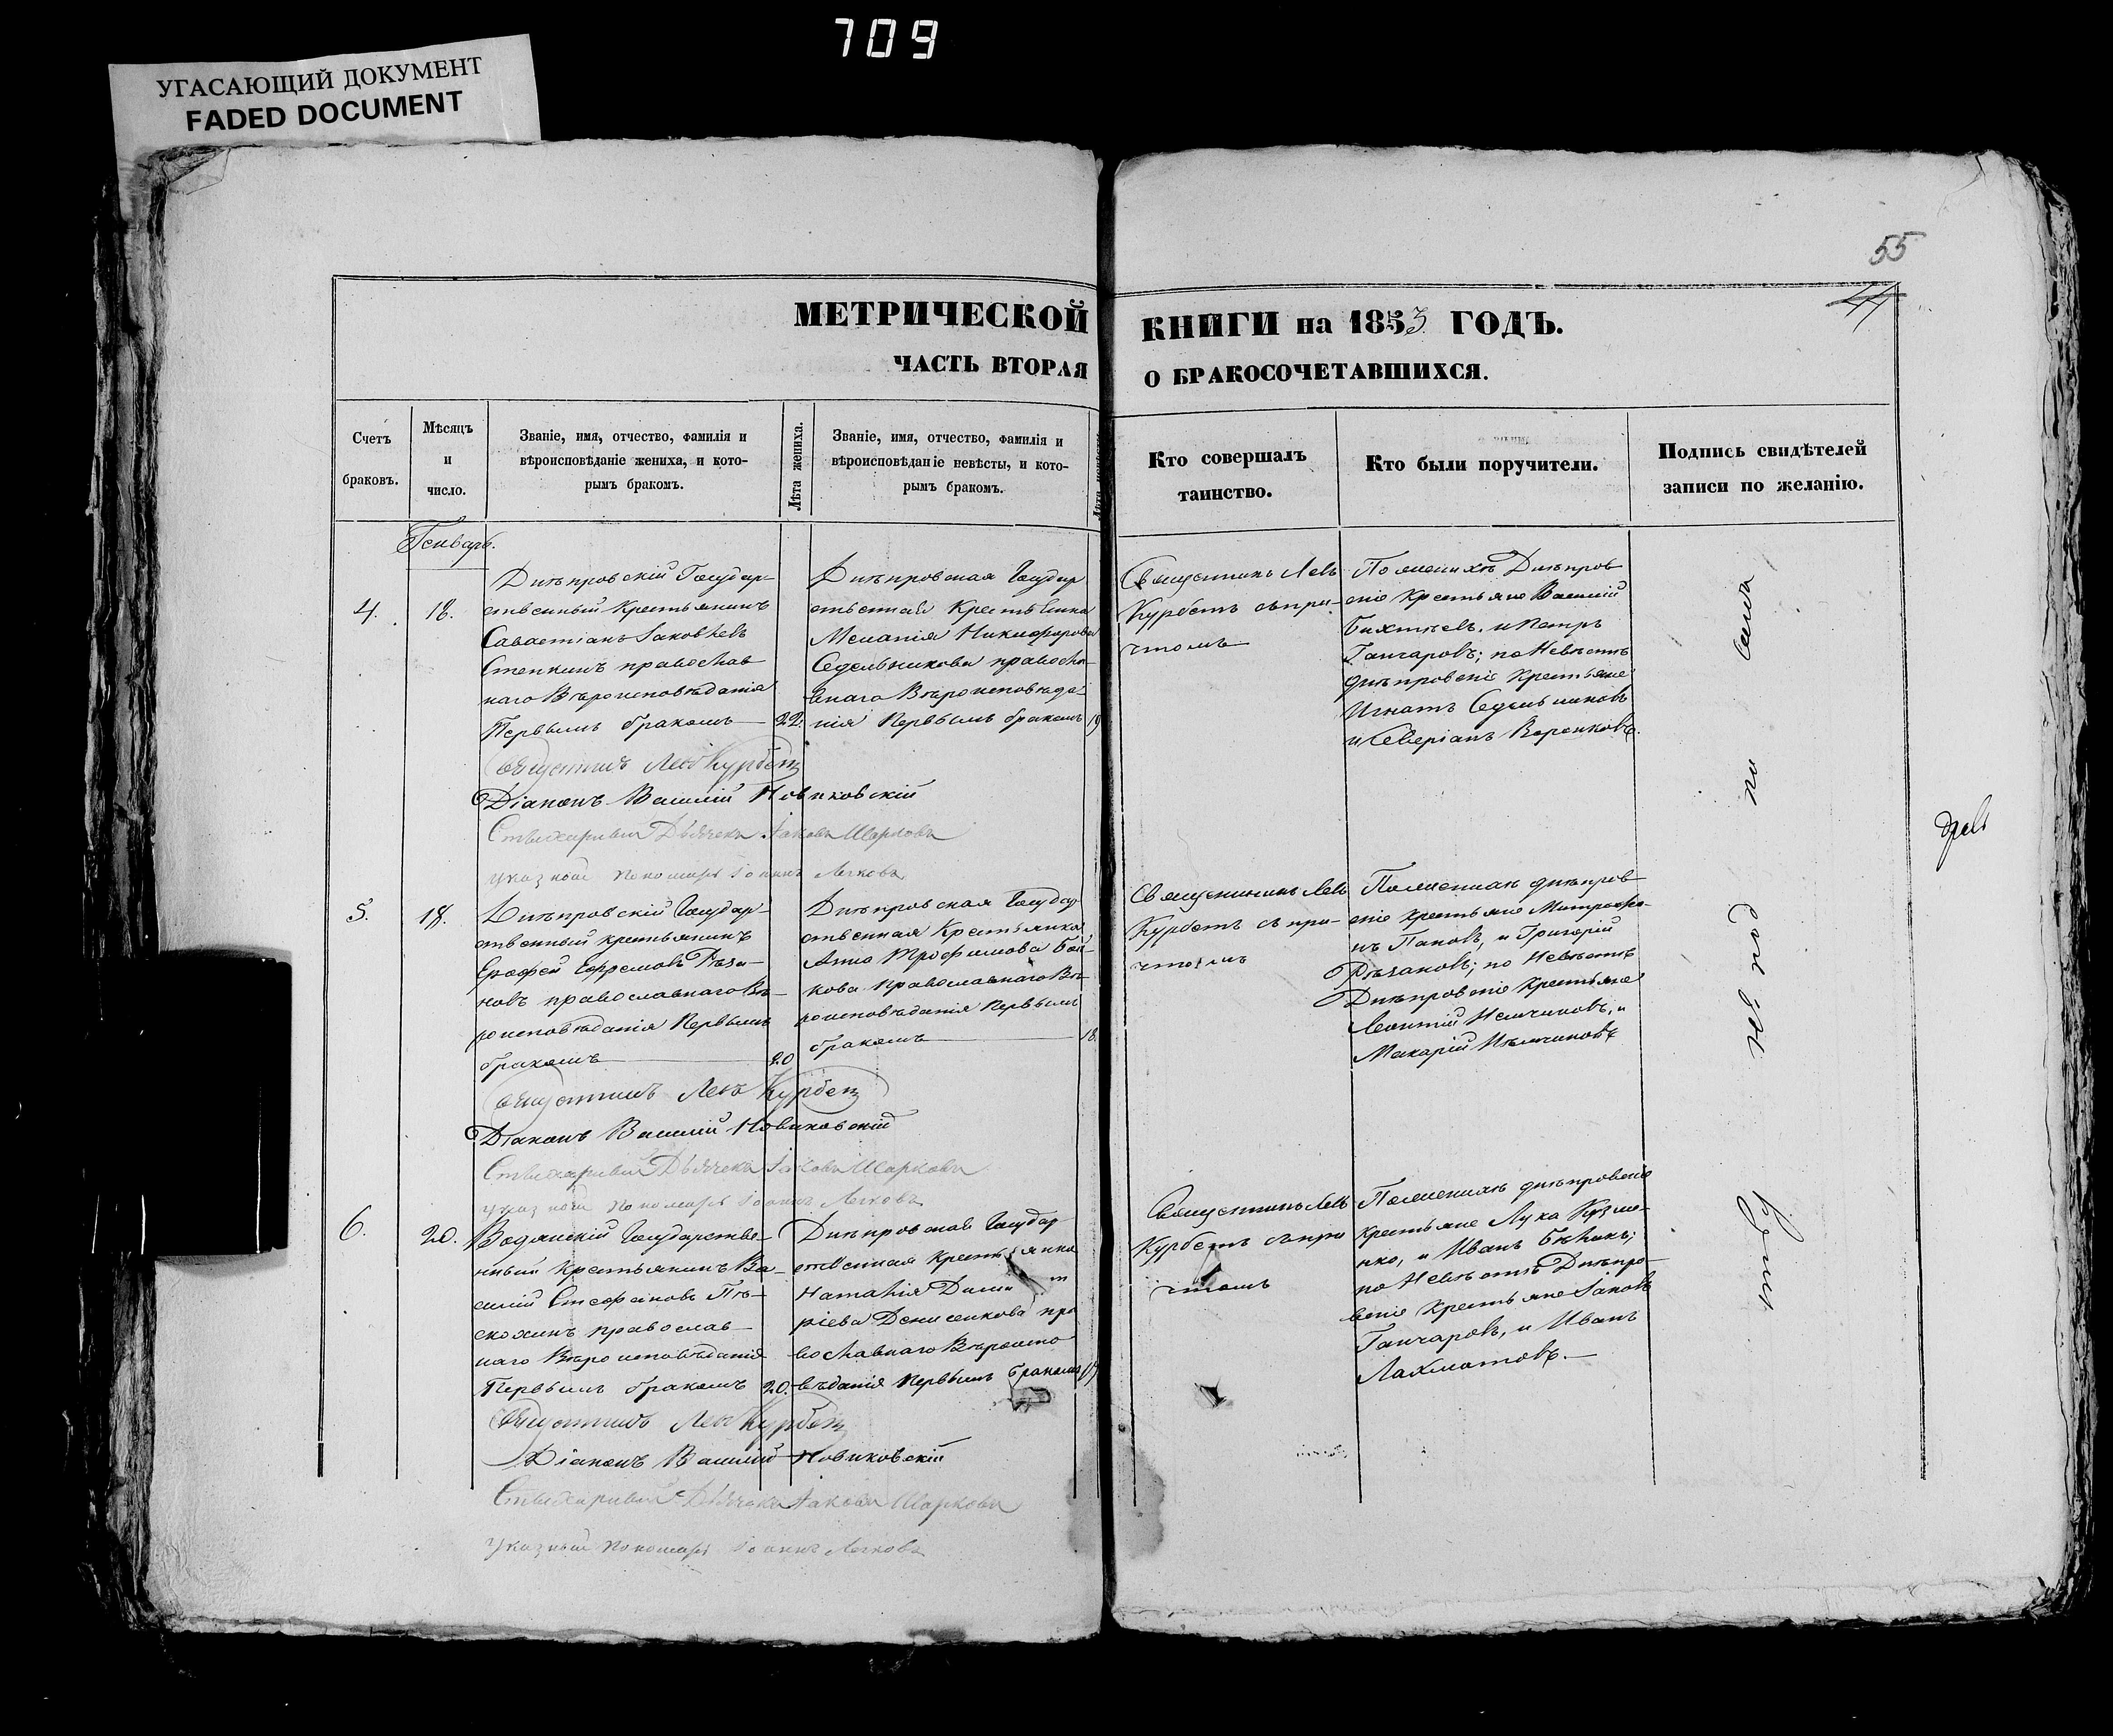 709
УГАСАЮЩИЙ ДОКУМЕНТ
FADED DOCUMENT
55
44
МЕТРИЧЕСКОЙ КНИГИ на 1853 ГОДЪ.
ЧАСТЬ ВТОРАЯ О БРАКОСОЧЕТАВШИХСЯ.
Счетъ
браковъ.
Мѣсяцъ
и
число.
Званіе, имя, отчество, фамилія и
вѣроисповѣданіе жениха, и кото-
рымъ бракомъ.
Лѣта жениха.
Званіе, имя, отчество, фамилія и
вѣроисповѣданіе невѣсты, и кото-
рымъ бракомъ.
Кто совершалъ
таинство.
Кто были поручители.
Подпись свидѣтелей
записи по желанію.
Генварь.
4.
18.
Днѣпровскій Государ-
ственный Крестьянинъ
Савастіанъ Іаковлевъ
Степкинъ православ
наго Вѣроисповѣданія
Первымъ бракомъ
22.
Днѣпровская Государ
ственная Крестьянка
Меланія Никифорова
Седельникова правосла-
внаго Вѣроисповѣда-
нія Первымъ бракомъ
19
Священникъ Левъ
Курбетъ съ при-
чтомъ
По женихѣ Днѣпров
скіе Крестьяне Василій
Бахтѣевъ и Петръ
Ганчаровъ; по Невѣстѣ
днѣпровскіе Крестьяне
Игнатъ Седельниковъ
и Северіанъ Воронковъ.
Священникъ Левъ Курбетъ
Діаконъ Василій Новиковскій
Стихарный Дьячекъ Іаковъ Шарковъ
указной Пономарь Іоаннъ Лежковъ
5.
18.
Днѣпровскій Государ-
ственный крестьянинъ
Ерофей Ефремовъ Рѣза-
новъ православнаго Вѣ-
роисповѣданія Первымъ
бракомъ
20
Днѣпровская Государ
ственная Крестьянка
Анна Трофимова
кова Православнаго Вѣ-
роисповѣданія Первымъ
бракомъ
18.
Священникъ Левъ
Курбетъ съ при-
чтомъ
По женихѣ днѣпров
скіе крестьяне Митрофа-
нъ Пановъ, и Григорій
Рѣзановъ; по Невѣстѣ
Днѣпровскіе Крестьяне
Леонтій Немчиновъ, и
Макарій Нѣмчиновъ
Священникъ Левъ Курбетъ
Діаконъ Василій Новиковскій
Стихарный Дьячекъ Іаковъ Шарковъ
указной Пономарь Іоаннъ Лежковъ
6.
20.
Водянскій Государстве-
нный Крестьянинъ Ва-
силій Стефановъ Пѣ-
скохинъ православ
наго Вѣроисповѣданія
Первымъ бракомъ
20.
Днѣпровская Государ
ственная крестьянка
Наталія Дими т
ріева Денисенкова пра
вославнаго Вѣроиспо
вѣданія Первымъ бракомъ
Священникъ Левъ
Курбетъ съ при
чтомъ
По женихѣ днѣпровскіе
крестьяне Лука Кузме-
нко, и Иванъ Бѣликъ;
по Невѣстѣ Днѣпро-
вскіе Крестьяне Іаковъ
Ганчаровъ, и Иванъ
Лахматовъ.
Священникъ Левъ Курбетъ
Діаконъ Василій Новиковскій
Стихарный Дьячекъ Іаковъ Шарковъ
Указной Пономарь Іоаннъ Лежковъ